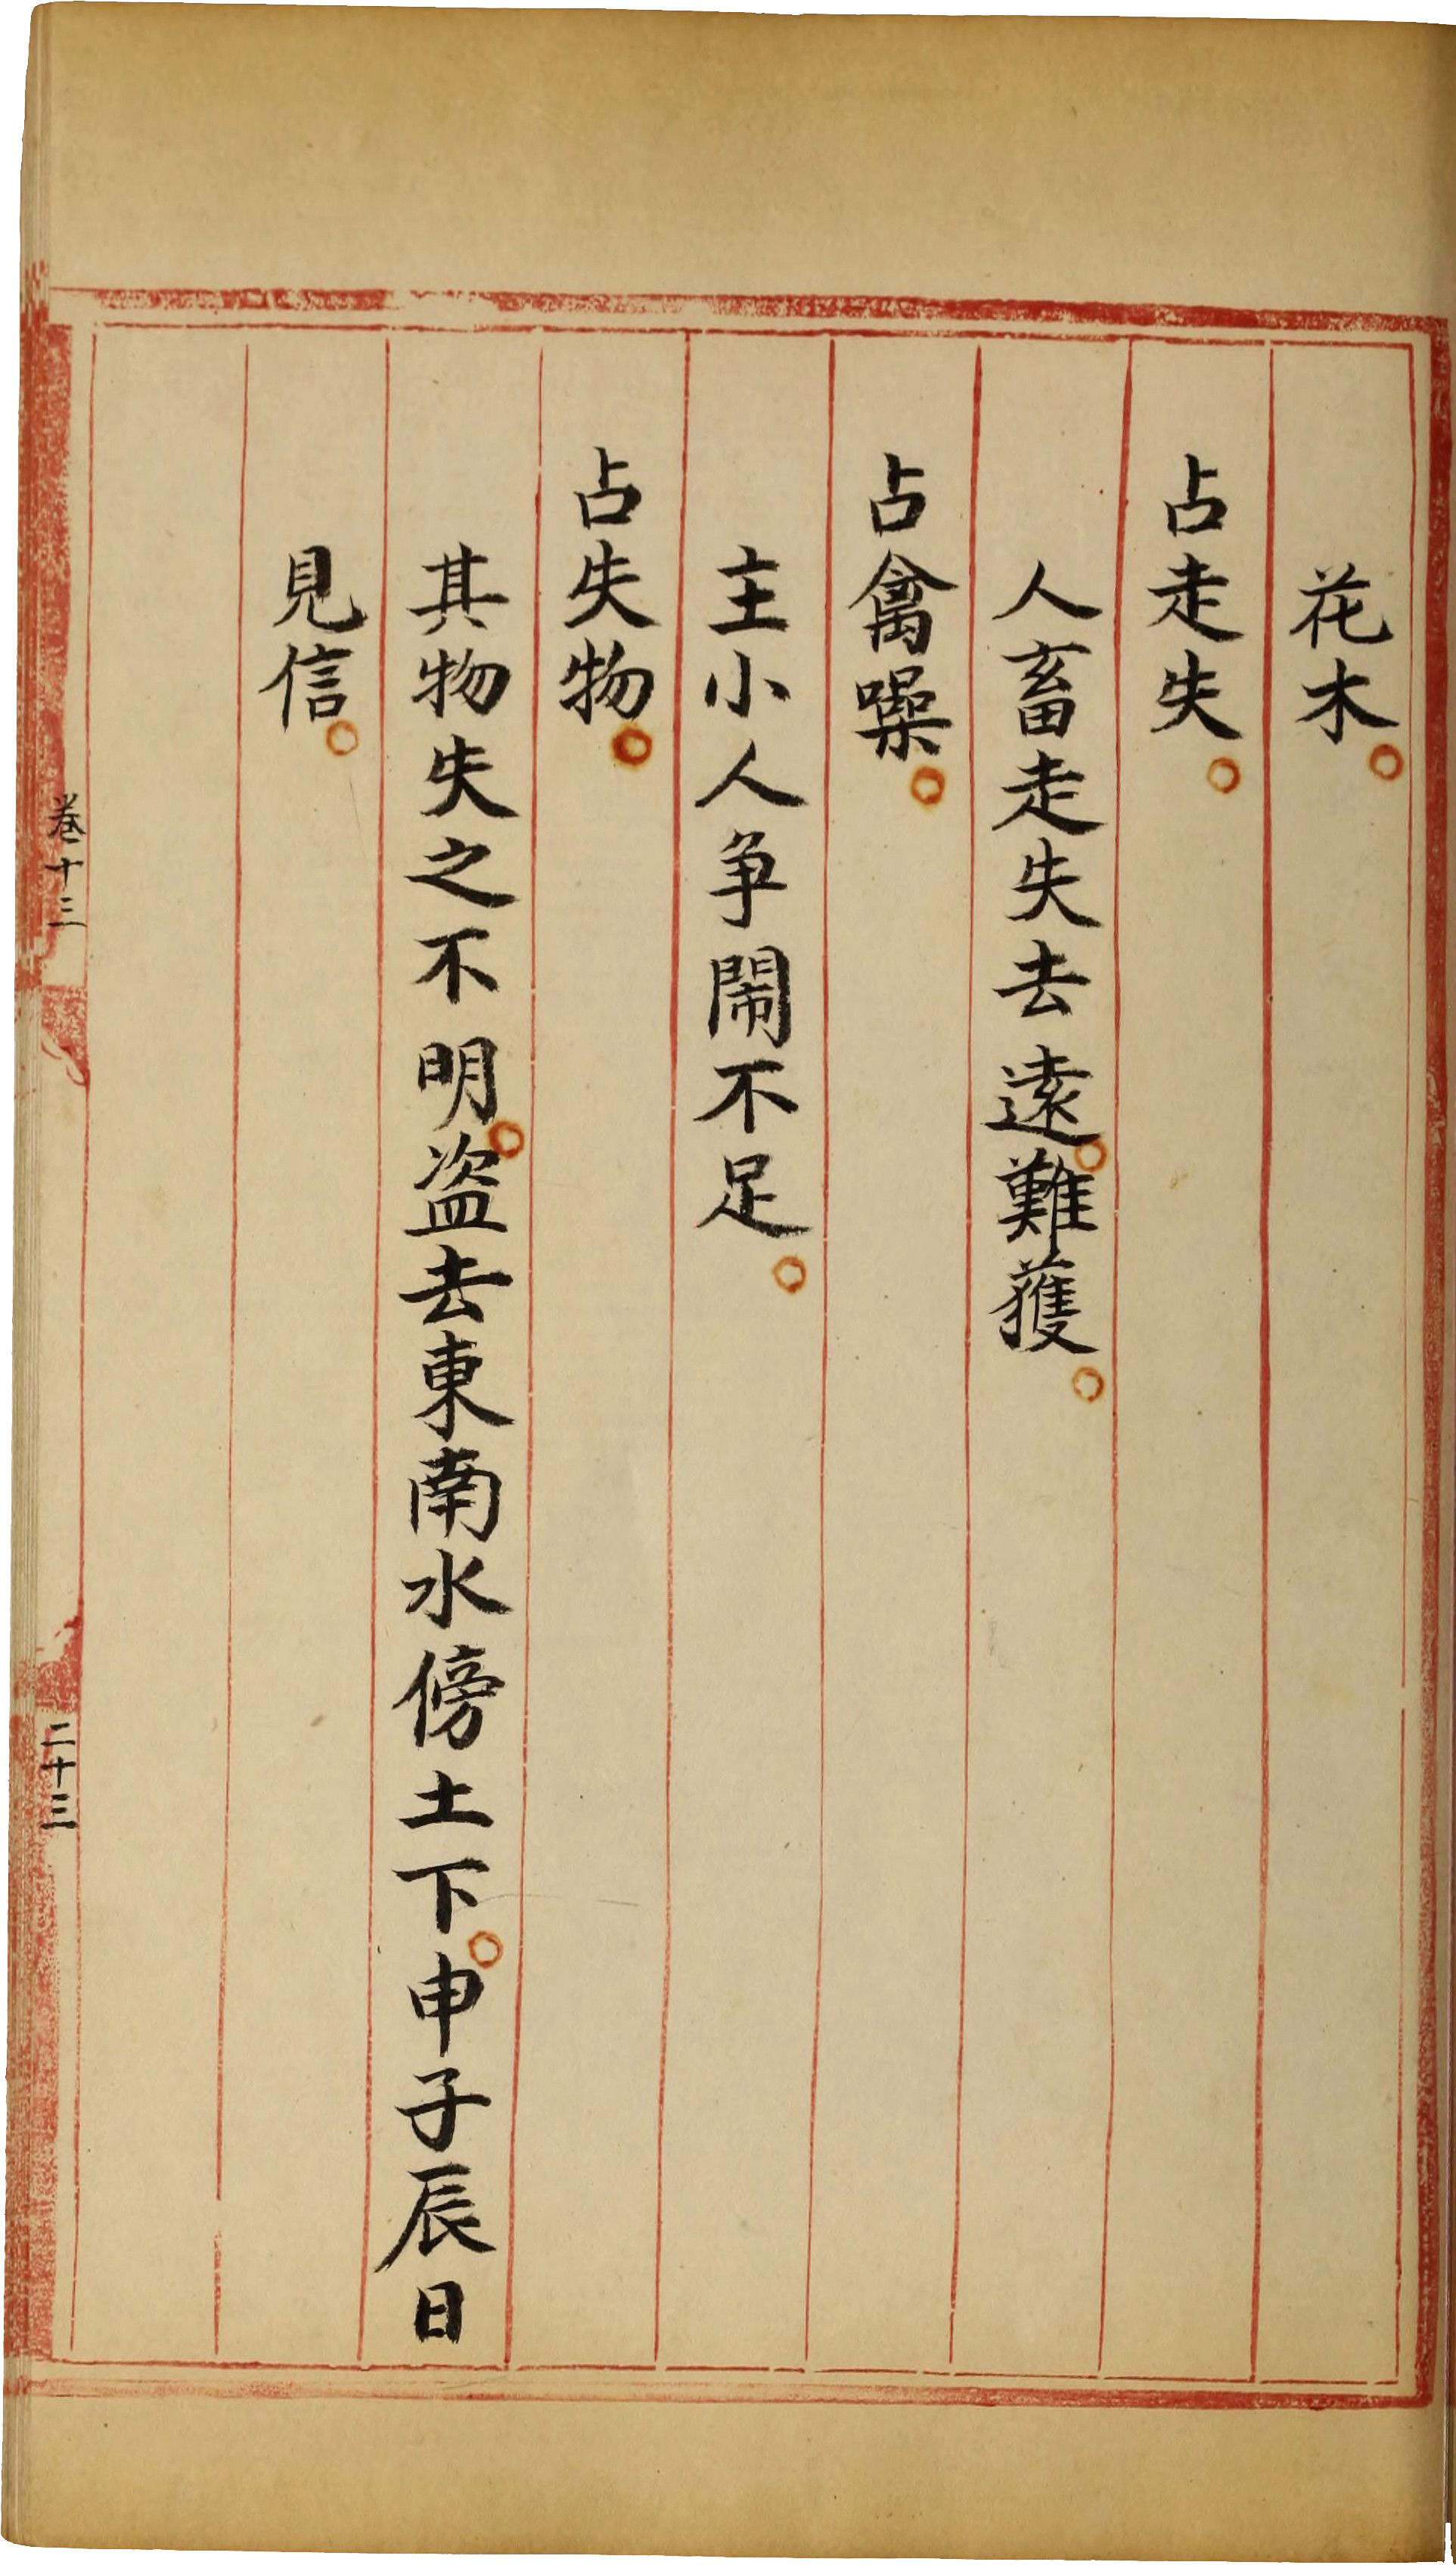 花木。
占走失。
人畜走失去遠。難獲。
占禽噪。
主小人爭鬧不足。
占失物。
其物失之不明。盗去東南水傍土下。申子辰日
見信。
卷十三
二十三